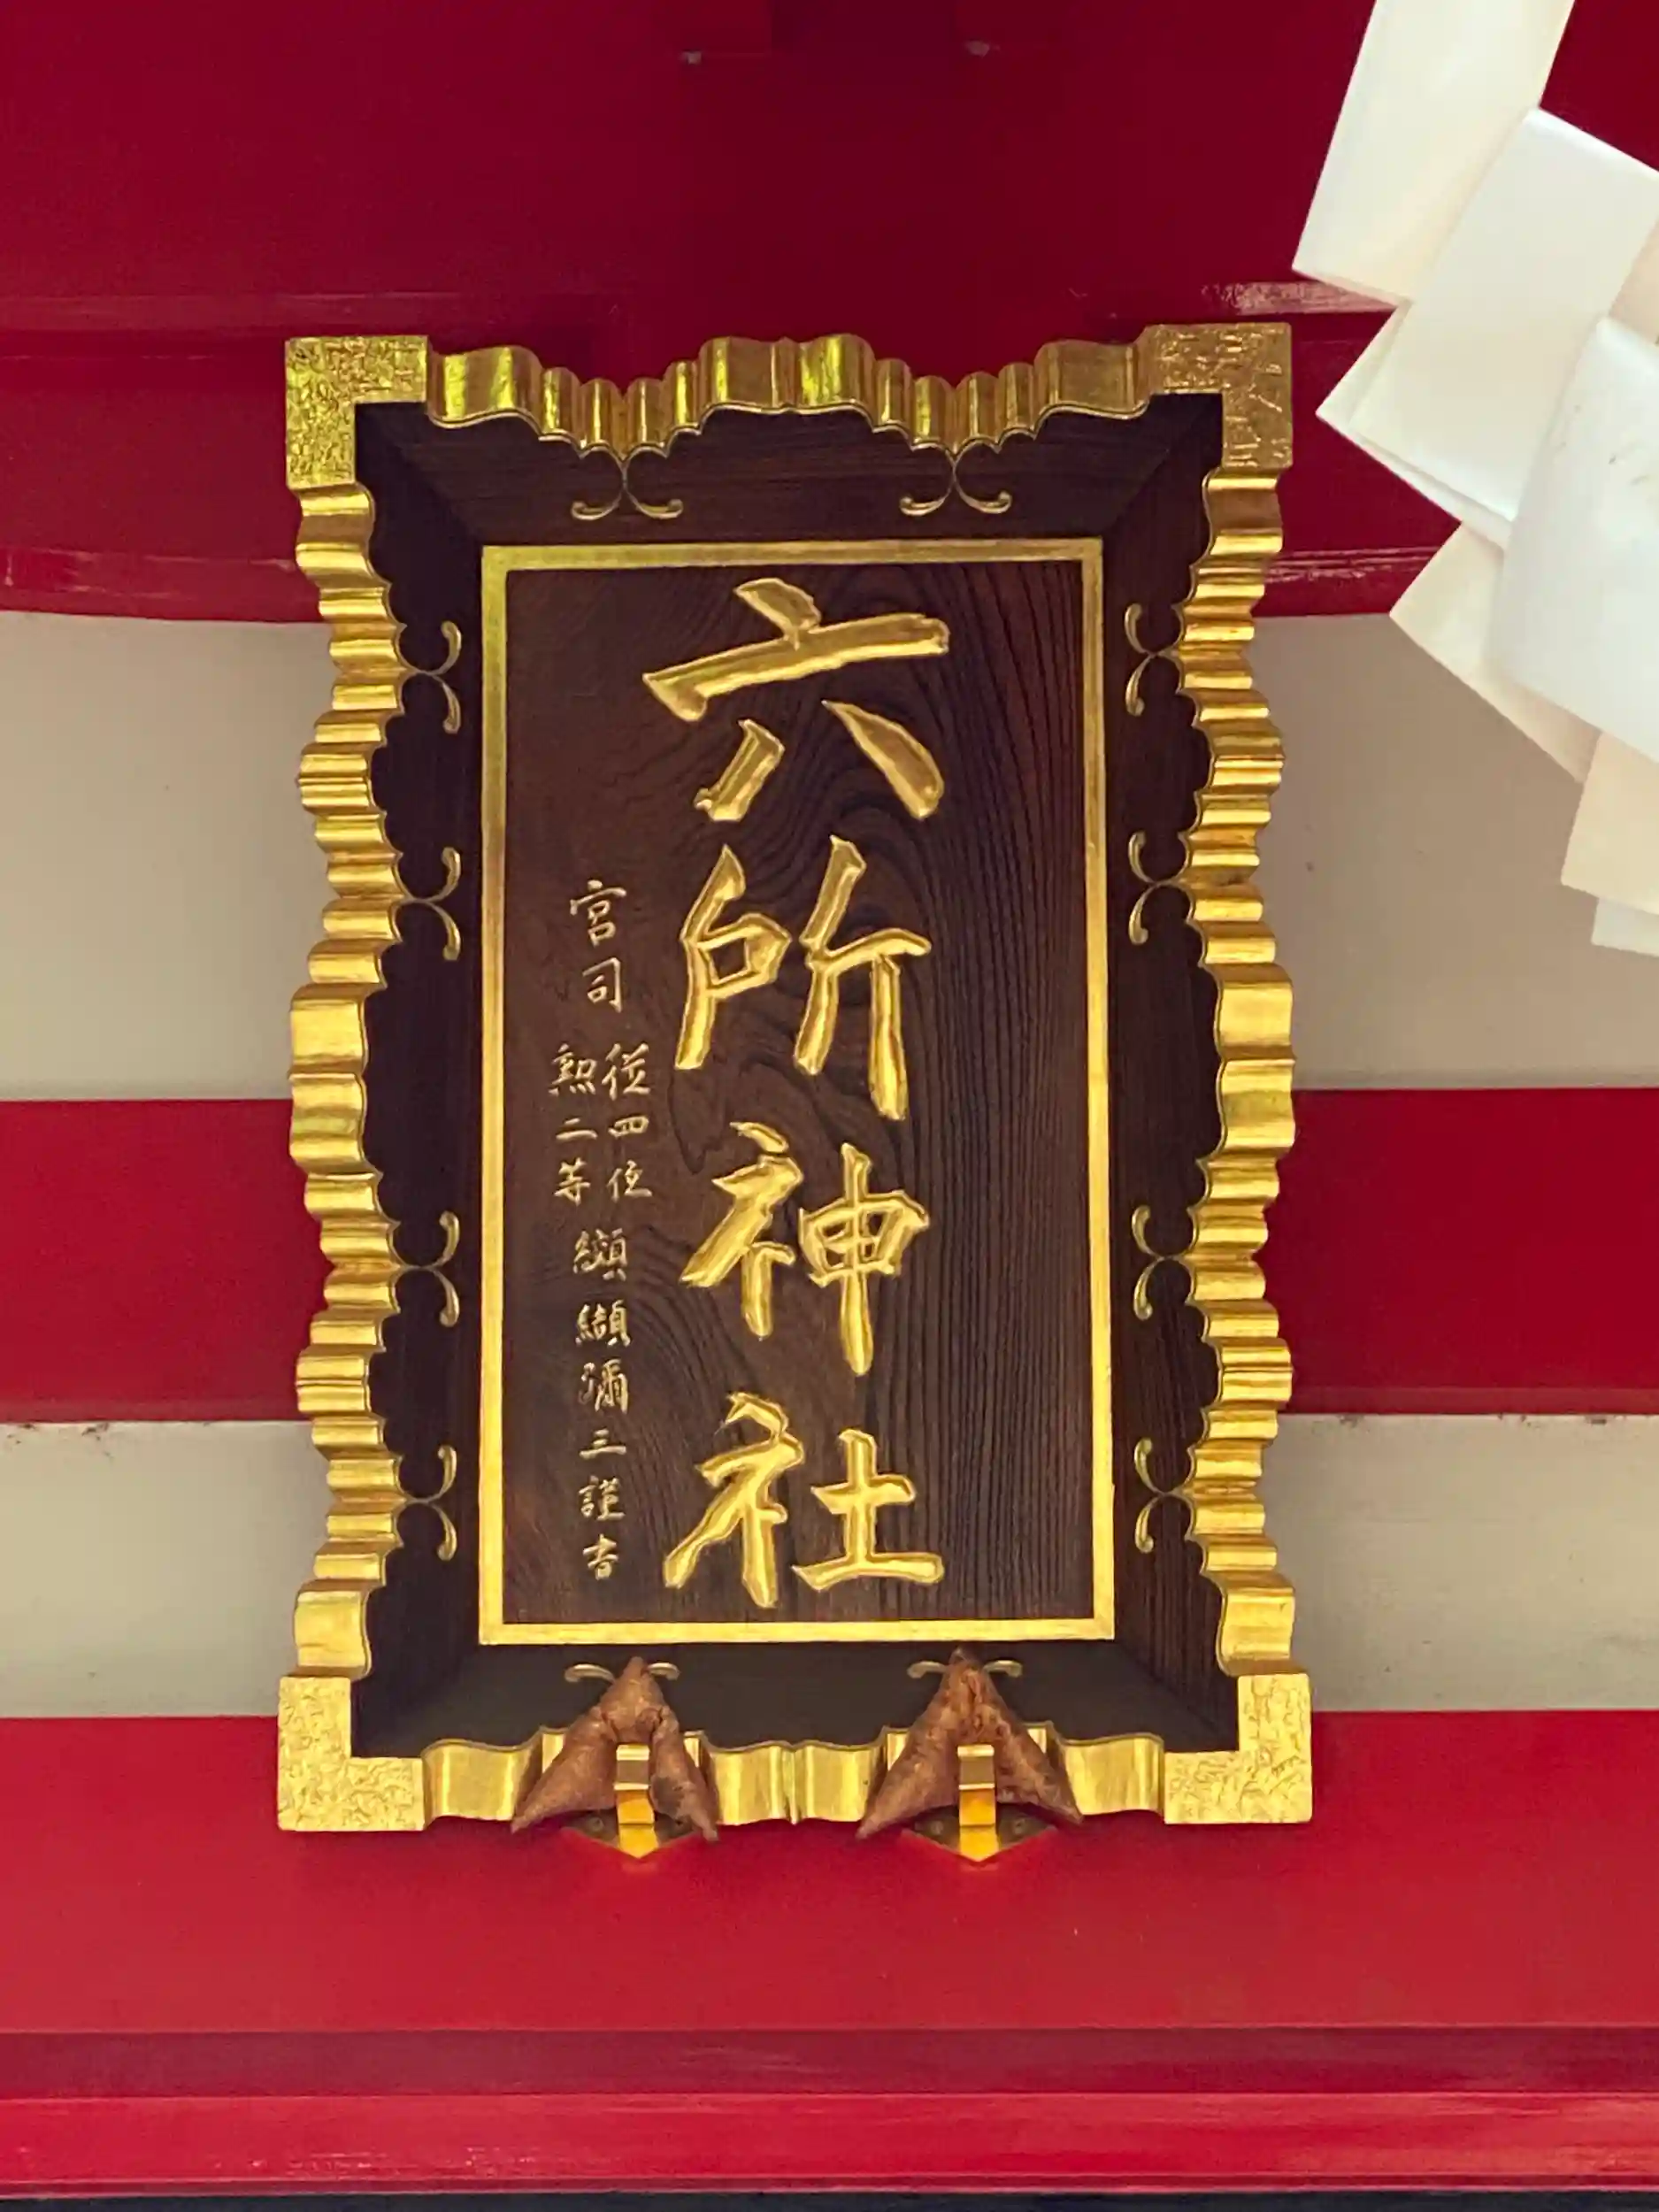 六所神社
宮司 従四位 勲二等 纐纈彌三謹書